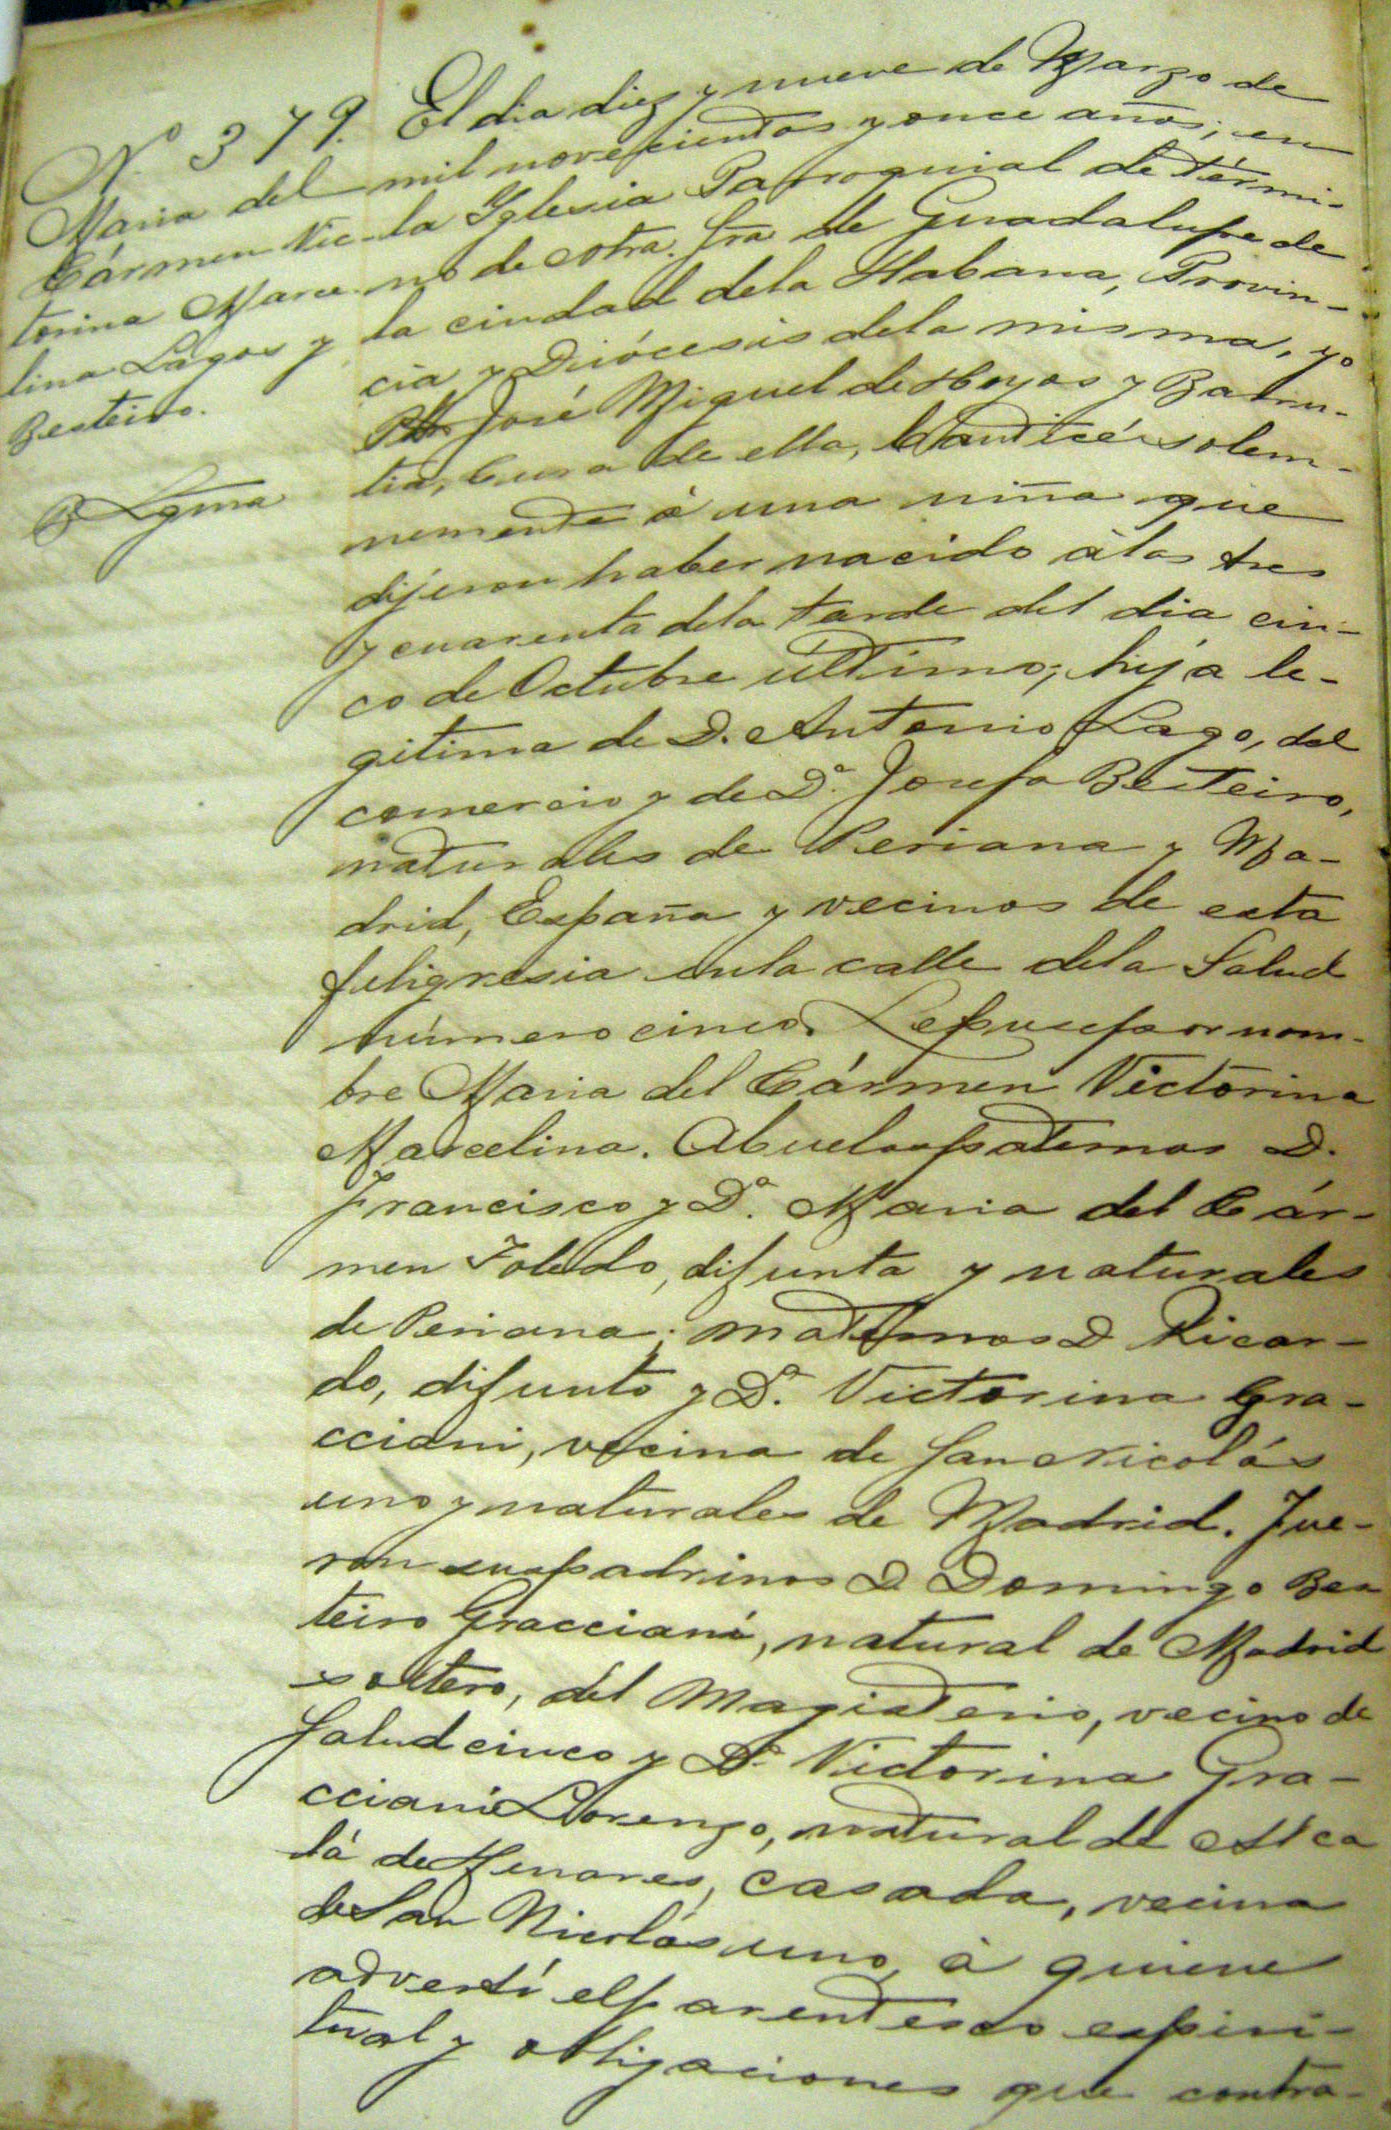 Nº 379.
Maria del
Cármen Vic-
torina Marce-
lina Lago y
Besteiro.
Lgma
El dia diez y nueve de Marzo de
mil novecientos y once años; en
la Yglesia Parroquial de térmi-
no de Ntra. Sra. de Guadalupe de
la ciudad dela Habana, Provin-
cia y Diócesis dela misma, yo
Pbro José Miguel de Hoyos y Barru-
tia, Cura de ella, bauticé solem-
nemente à una niña que
dijeron haber nacido à las tres
y cuarenta dela tarde del dia cin-
co de Octubre último; hija le-
gitima de D. Antonio Lago, del
comercio y de Dª. Josefa Besteiro,
naturales de Periana y Ma-
drid, España y vecinos de esta
feligresia en la calle dela Salud
número cinco. Le puse por nom-
bre Maria del Cármen Victorina
Marcelina. Abuelos paternos D.
Francisco y Dª. Maria del Cár-
men Toledo, difunta y naturales
de Periana; maternos D Ricar-
do, difunto y Dª. Victorina Gra-
cciani, vecina de San Nicolás
uno y naturales de Madrid. Fue-
ron sus padrinos D Domingo Bes
teiro Gracciani, natural de Madrid
soltero, del Magisterio, vecino de
Salud cinco y Dª Victorina Gra-
cciani Lorenzo, natural de Alca
lá de Henares, casada, vecina
de San Nicolás uno, à quiene
advertí el parentesco espiri-
tual y obligaciones que contra-